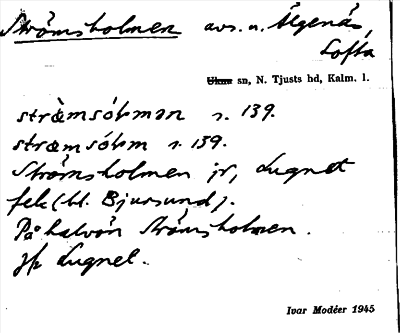 Strömsholmen avs. u. Älgenäs,
Lofta
Ukna sn, N. Tjusts hd, Kalm. l.
stràmsóḷman s. 139.
stramsóḷm s. 139.
Strömsholmen jr, Lugnet
fek (bl. Bjursund).
På halvön Strömsholmen.
jfr Lugnet.
Ivar Modéer 1945